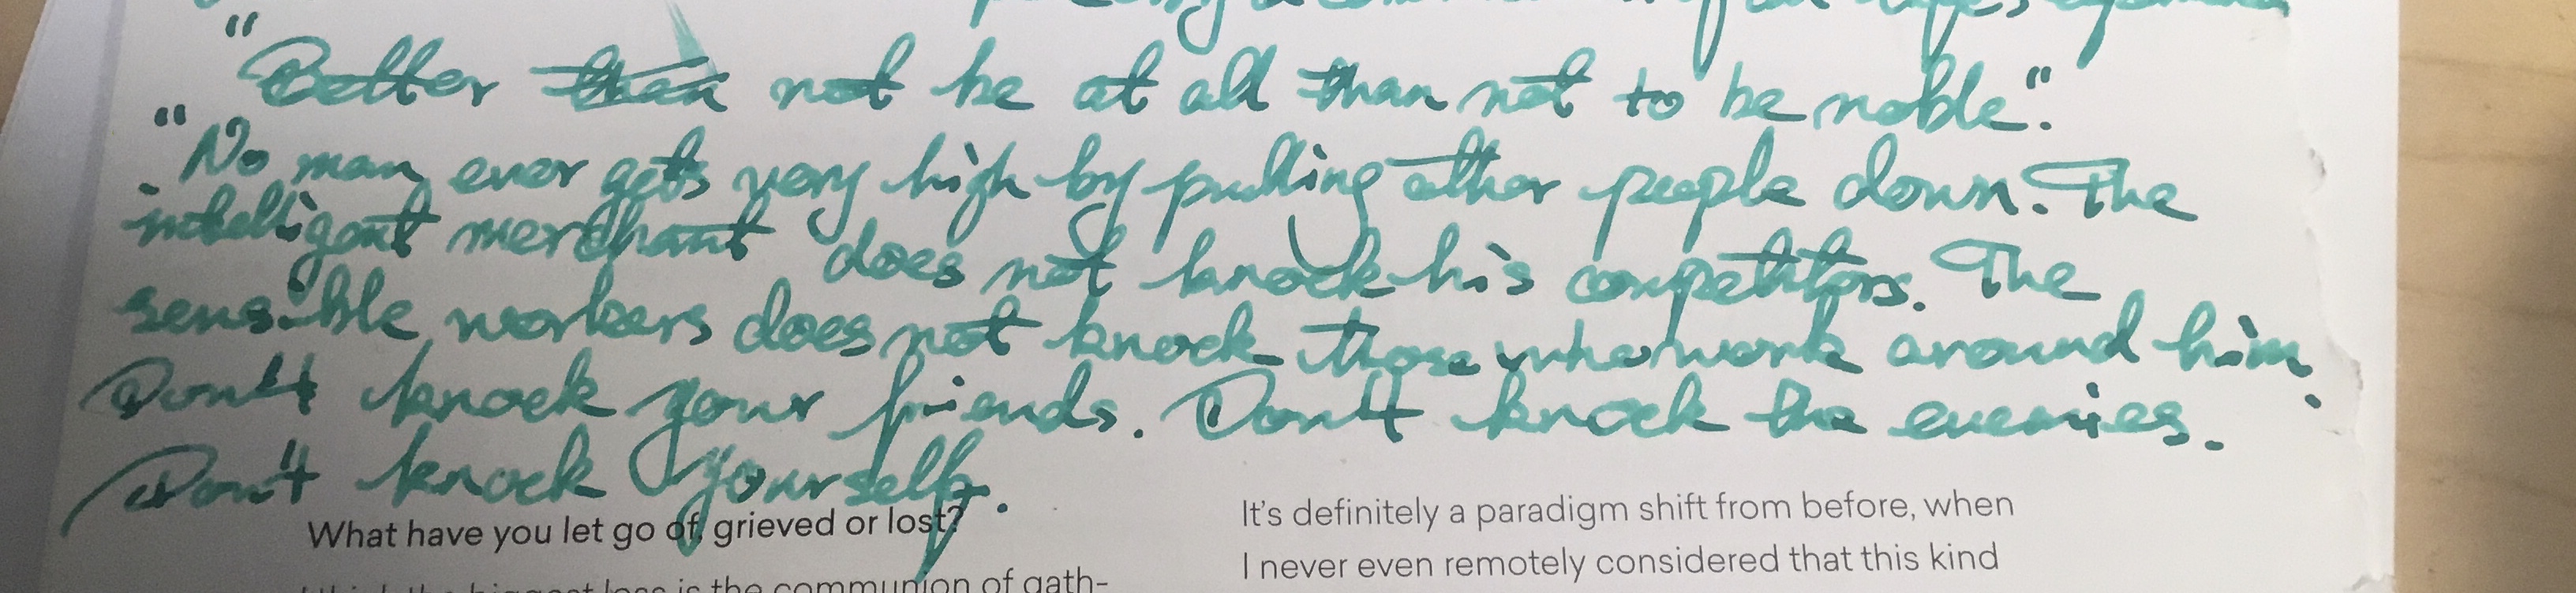 "Better ~~than~~ not be at all than not to be noble."
"No man ever gets very high by pulling other people down. The
intelligent merchant does not knock his competitors. The
sensible workers does not knock those who work around him.
Don't knock your friends. Don't knock the enemies.
Don't knock yourself.
What have you let go of, grieved or lost?
I think the biggest loss is the communion of gath-
It's definitely a paradigm shift from before, when
I never even remotely considered that this kind